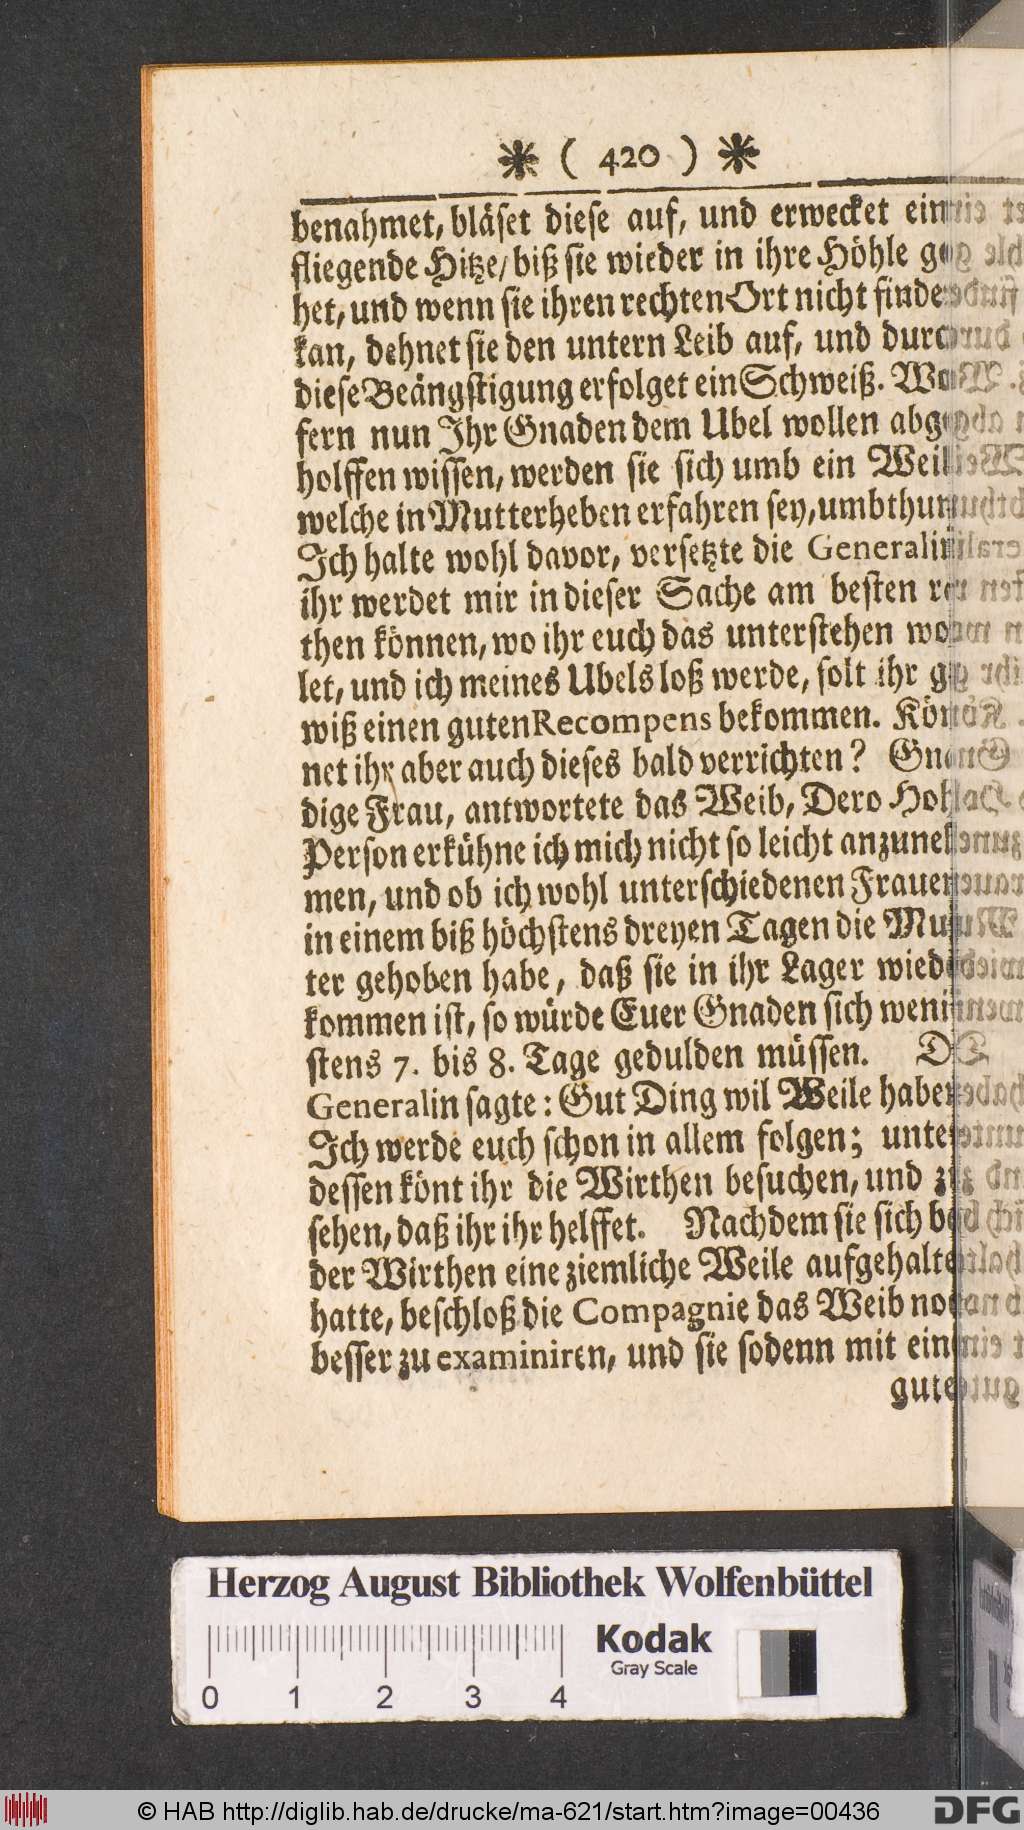 * ( 420 ) *
benahmet, bläset diese auf, und erwecket ein
fliegende Hitze/ biß sie wieder in ihre Höhle ge
het, und wenn sie ihren rechten Ort nicht finden
kan, dehnet sie den untern Leib auf, und durch
diese Beängstigung erfolget ein Schweiß. Wo
fern nun Ihr Gnaden dem Ubel wollen abge
holffen wissen, werden sie sich umb ein Weib
welche in Mutterheben erfahren sey, umbthun
Ich halte wohl davor, versetzte die Generalin
ihr werdet mir in dieser Sache am besten ra
then können, wo ihr euch das unterstehen wol
let, und ich meines Ubels loß werde, solt ihr ge
wiß einen guten Recompens bekommen. Kön
net ihr aber auch dieses bald verrichten? Gnä
dige Frau, antwortete das Weib, Dero Hohe
Person erkühne ich mich nicht so leicht anzuneh
men, und ob ich wohl unterschiedenen Frauen
in einem biß höchstens dreyen Tagen die Mut
ter gehoben habe, daß sie in ihr Lager wieder
kommen ist, so würde Euer Gnaden sich wenig
stens 7. bis 8. Tage gedulden müssen. Die
Generalin sagte: Gut Ding wil Weile haben
Ich werde euch schon in allem folgen; unter
dessen könt ihr die Wirthen besuchen, und zu
sehen, daß ihr ihr helffet. Nachdem sie sich bey
der Wirthen eine ziemliche Weile aufgehalten
hatte, beschloß die Compagnie das Weib noch
besser zu examiniren, und sie sodenn mit ein
gute
Herzog August Bibliothek Wolfenbüttel
Kodak
Gray Scale
0 1 2 3 4
© HAB http://diglib.hab.de/drucke/ma-621/start.htm?image=00436
DFG